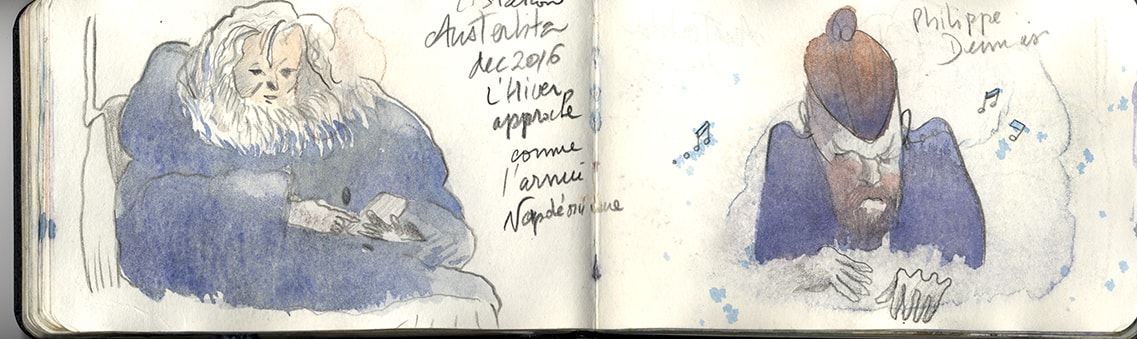 Station
Austerlitz
dec 2016
L'Hiver
approche
comme
l'armée
Napoléonienne
Philippe